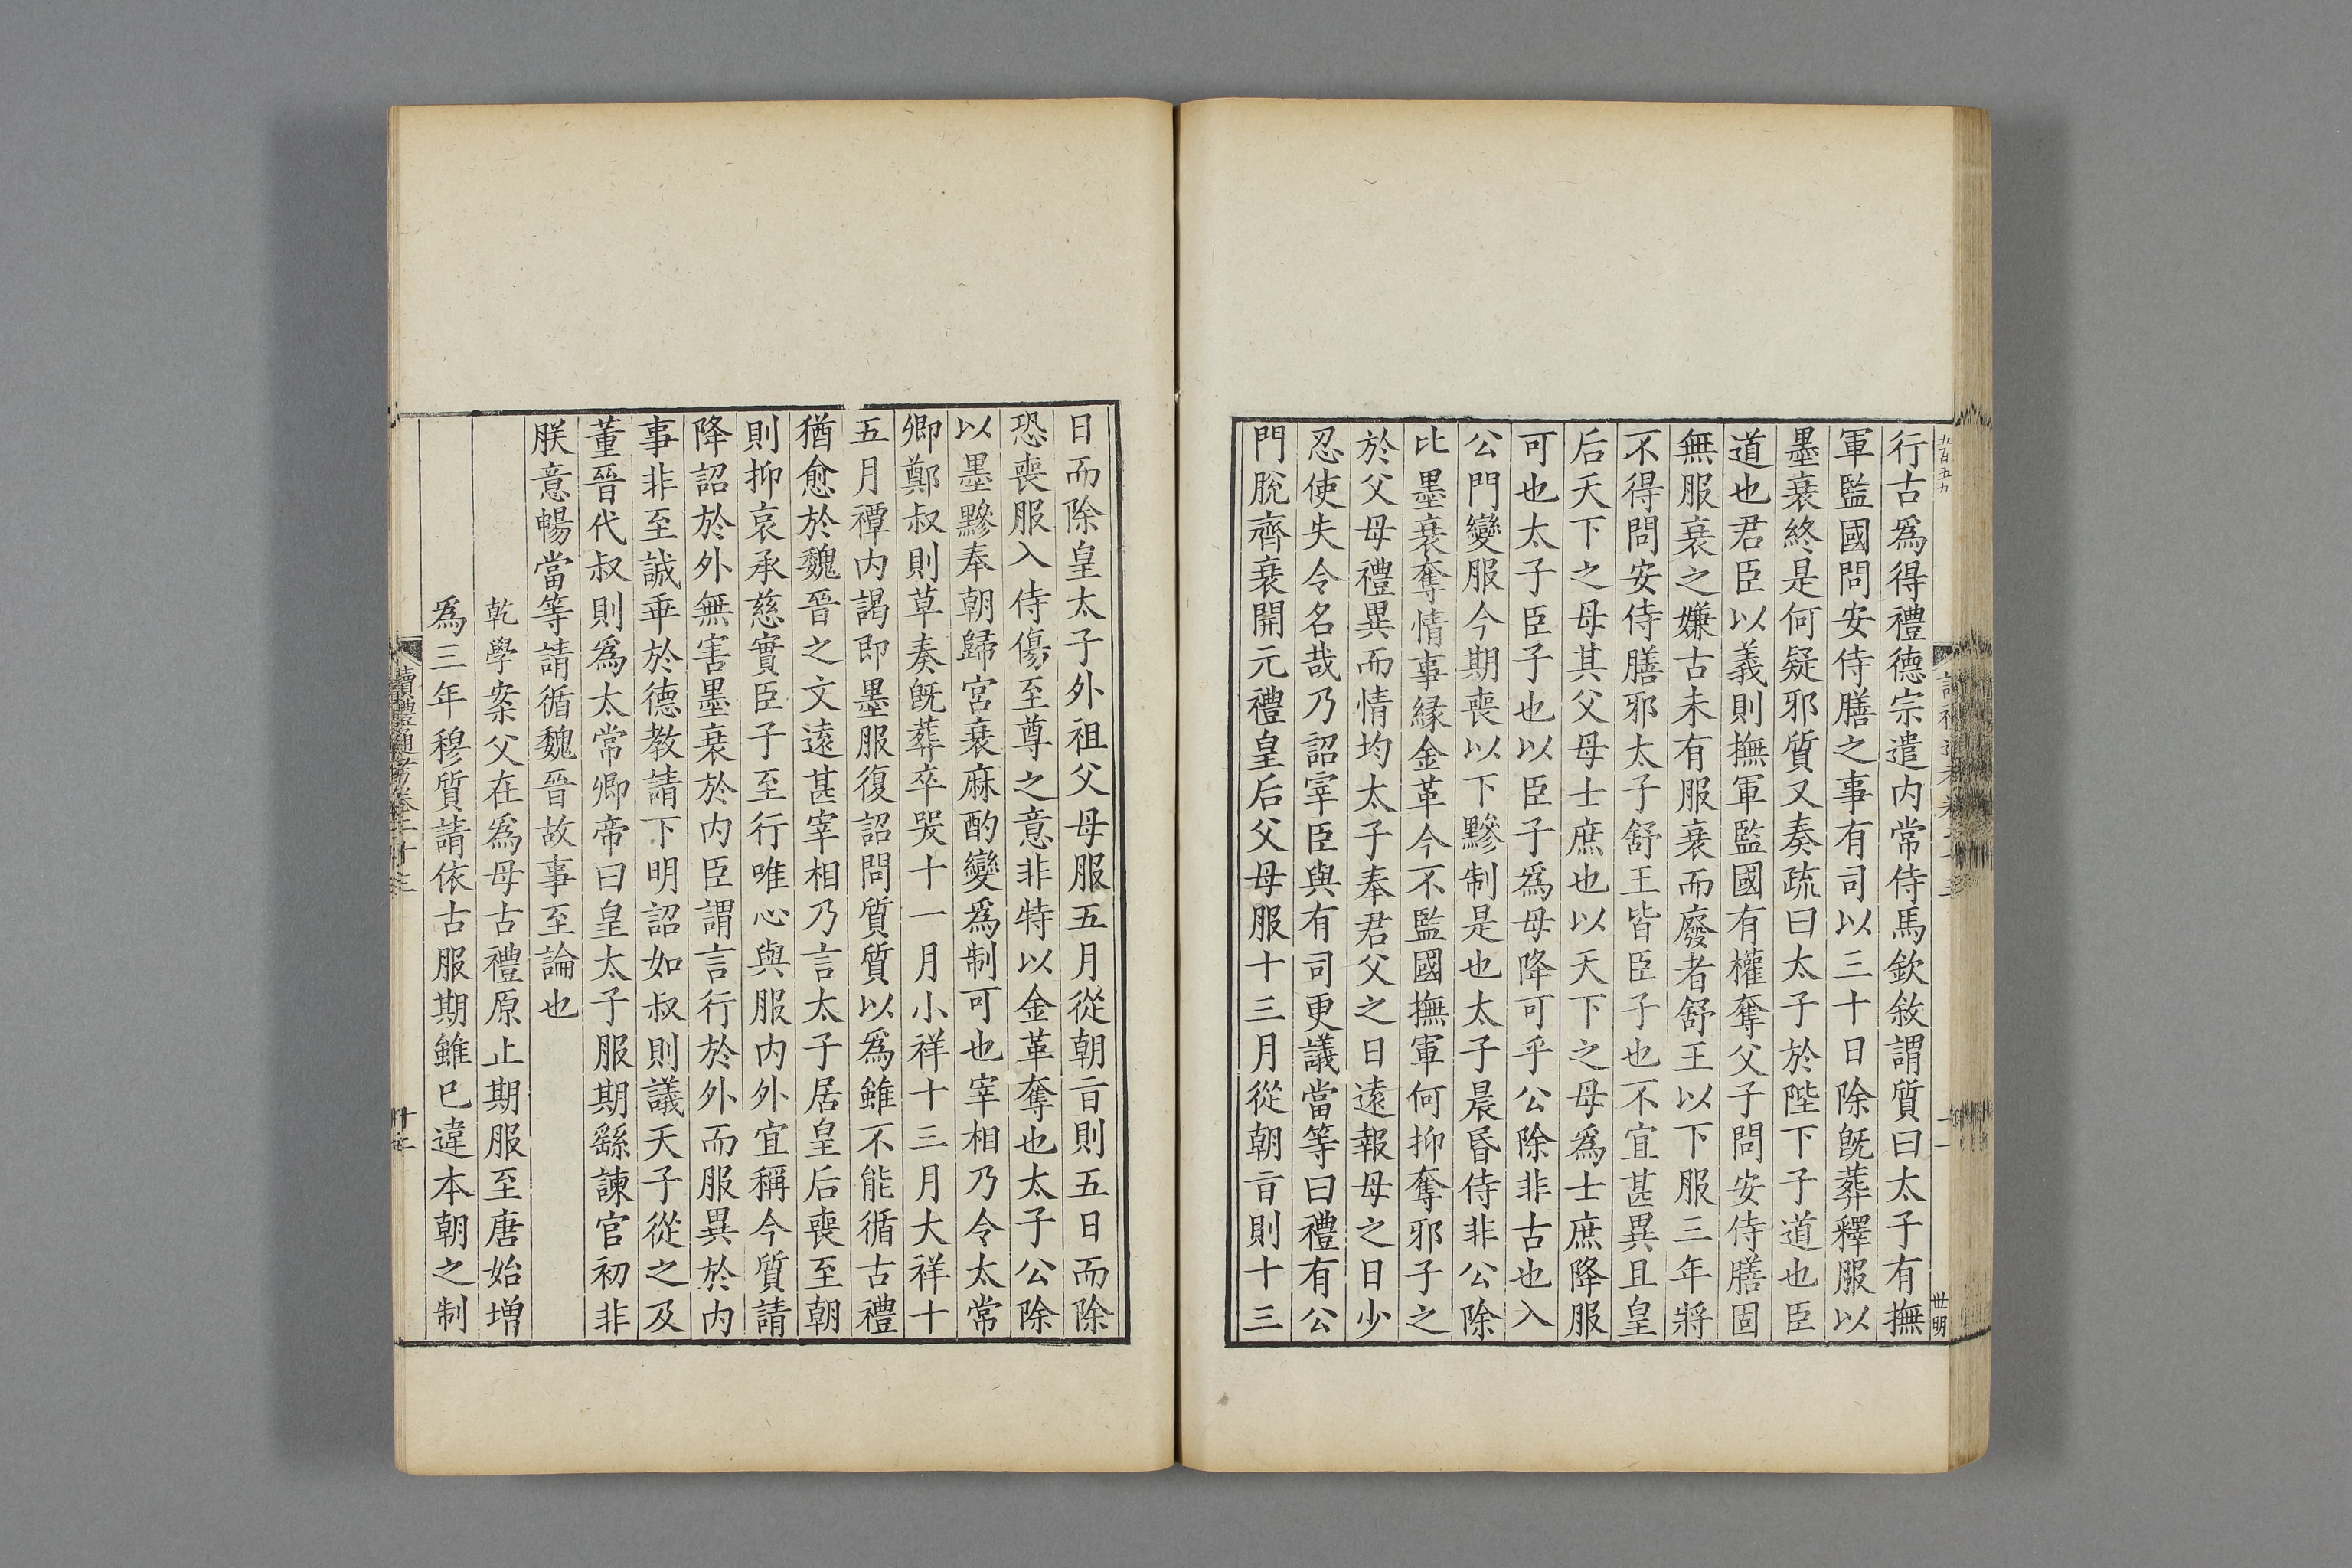 行古爲得禮德宗遣内常侍馬欽敘謂質曰太子有撫
軍監國問安侍膳之事有司以三十日除旣葬釋服以
墨衰終是何疑邪質又奏疏曰太子於陛下子道也臣
道也君臣以義則撫軍監國有權奪父子問安侍膳固
無服衰之嫌古未有服衰而廢者舒王以下服三年將
不得問安侍膳邪太子舒王皆臣子也不宜甚異且皇
后天下之母其父母士庶也以天下之母爲士庶降服
可也太子臣子也以臣子爲母降可乎公除非古也入
公門變服今期喪以下黲制是也太子晨昏侍非公除
比墨衰奪情事緣金革今不監國撫軍何抑奪邪子之
於父母禮異而情均太子奉君父之日遠報母之日少
忍使失令名哉乃詔宰臣與有司更議當等曰禮有公
門脫齊衰開元禮皇后父母服十三月從朝旨則十三
日而除皇太子外祖父母服五月從朝旨則五日而除
恐喪服入侍傷至尊之意非特以金革奪也太子公除
以墨黲奉朝歸宮衰麻酌變爲制可也宰相乃令太常
卿鄭叔則草奏旣葬卒哭十一月小祥十三月大祥十
五月禫内謁即墨服復詔問質質以爲雖不能循古禮
猶愈於魏晉之文遠甚宰相乃言太子居皇后喪至朝
則抑哀承慈實臣子至行唯心與服内外宜稱今質請
降詔於外無害墨衰於内臣謂言行於外而服異於内
事非至誠乖於德教請下明詔如叔則議天子從之及
董晉代叔則爲太常卿帝曰皇太子服期繇諫官初非
朕意暢當等請循魏晉故事至論也
乾學案父在爲母古禮原止期服至唐始增
爲三年穆質請依古服期雖已違本朝之制
讀禮通考卷二十三